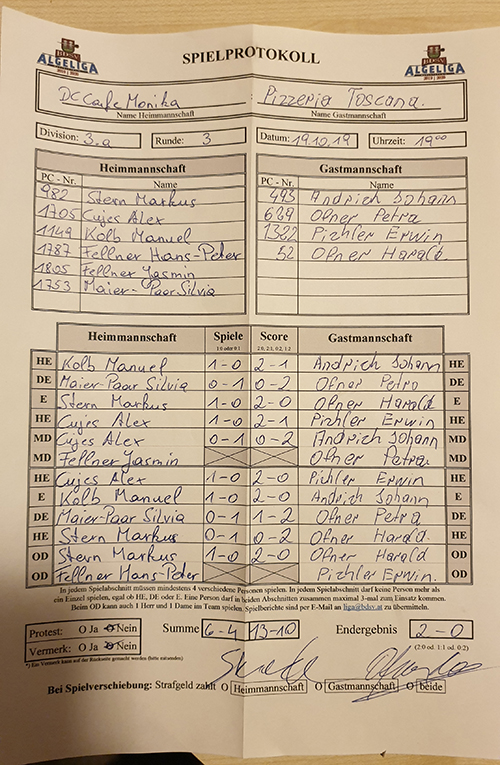 ALGELIGA SPIELPROTOKOLL ALGELIGA
2019 | 2020 2019 | 2020
DC Cafe Monika Pizzeria Toscana.
Name Heimmannschaft Name Gastmannschaft
Division: 3.a Runde: 3 Datum: 19.10.19 Uhrzeit: 19⁰⁰
Heimmannschaft Gastmannschaft
PC - Nr. Name PC - Nr. Name
982 Stern Markus 493 Andrich Johann
1705 Cujes Alex 689 Ofner Petra
1149 Kolb Manuel 1322 Pichler Erwin
1787 Fellner Hans-Peter 52 Ofner Harald
1805 Fellner Jasmin
1753 Maier-Paar Silvia
Heimmannschaft Spiele Score Gastmannschaft
1:0 oder 0:1 2:0, 2:1, 0:2, 1:2
HE Kolb Manuel 1-0 2-1 Andrich Johann HE
DE Maier-Paar Silvia 0-1 0-2 Ofner Petra DE
E Stern Markus 1-0 2-0 Ofner Harald E
HE Cujes Alex 1-0 2-1 Pichler Erwin HE
MD Cujes Alex 0-1 0-2 Andrich Johann MD
MD Fellner Jasmin Ofner Petra MD
HE Cujes Alex 1-0 2-0 Pichler Erwin HE
E Kolb Manuel 1-0 2-0 Andrich Johann E
DE Maier-Paar Silvia 0-1 1-2 Ofner Petra DE
HE Stern Markus 0-1 0-2 Ofner Harald. HE
OD Stern Markus 1-0 2-0 Ofner Harald OD
OD Fellner Hans-Peter Pichler Erwin. OD
In jedem Spielabschnitt müssen mindestens 4 verschiedene Personen spielen. In jedem Spielabschnitt darf keine Person mehr als
ein Einzel spielen, egal ob HE, DE oder E. Eine Person darf in beiden Abschnitten zusammen maximal 3-mal zum Einsatz kommen.
Beim OD kann auch 1 Herr und 1 Dame im Team spielen. Spielberichte sind per E-Mail an liga@bdsv.at zu übermitteln.
Protest: O Ja O Nein Summe 6-4 13-10 Endergebnis 2-0
Vermerk: O Ja O Nein (2:0 od. 1:1 od. 0:2)
*) Ein Vermerk kann auf der Rückseite gemacht werden (bitte mitsenden)
Bei Spielverschiebung: Strafgeld zahlt O Heimmannschaft O Gastmannschaft O beide